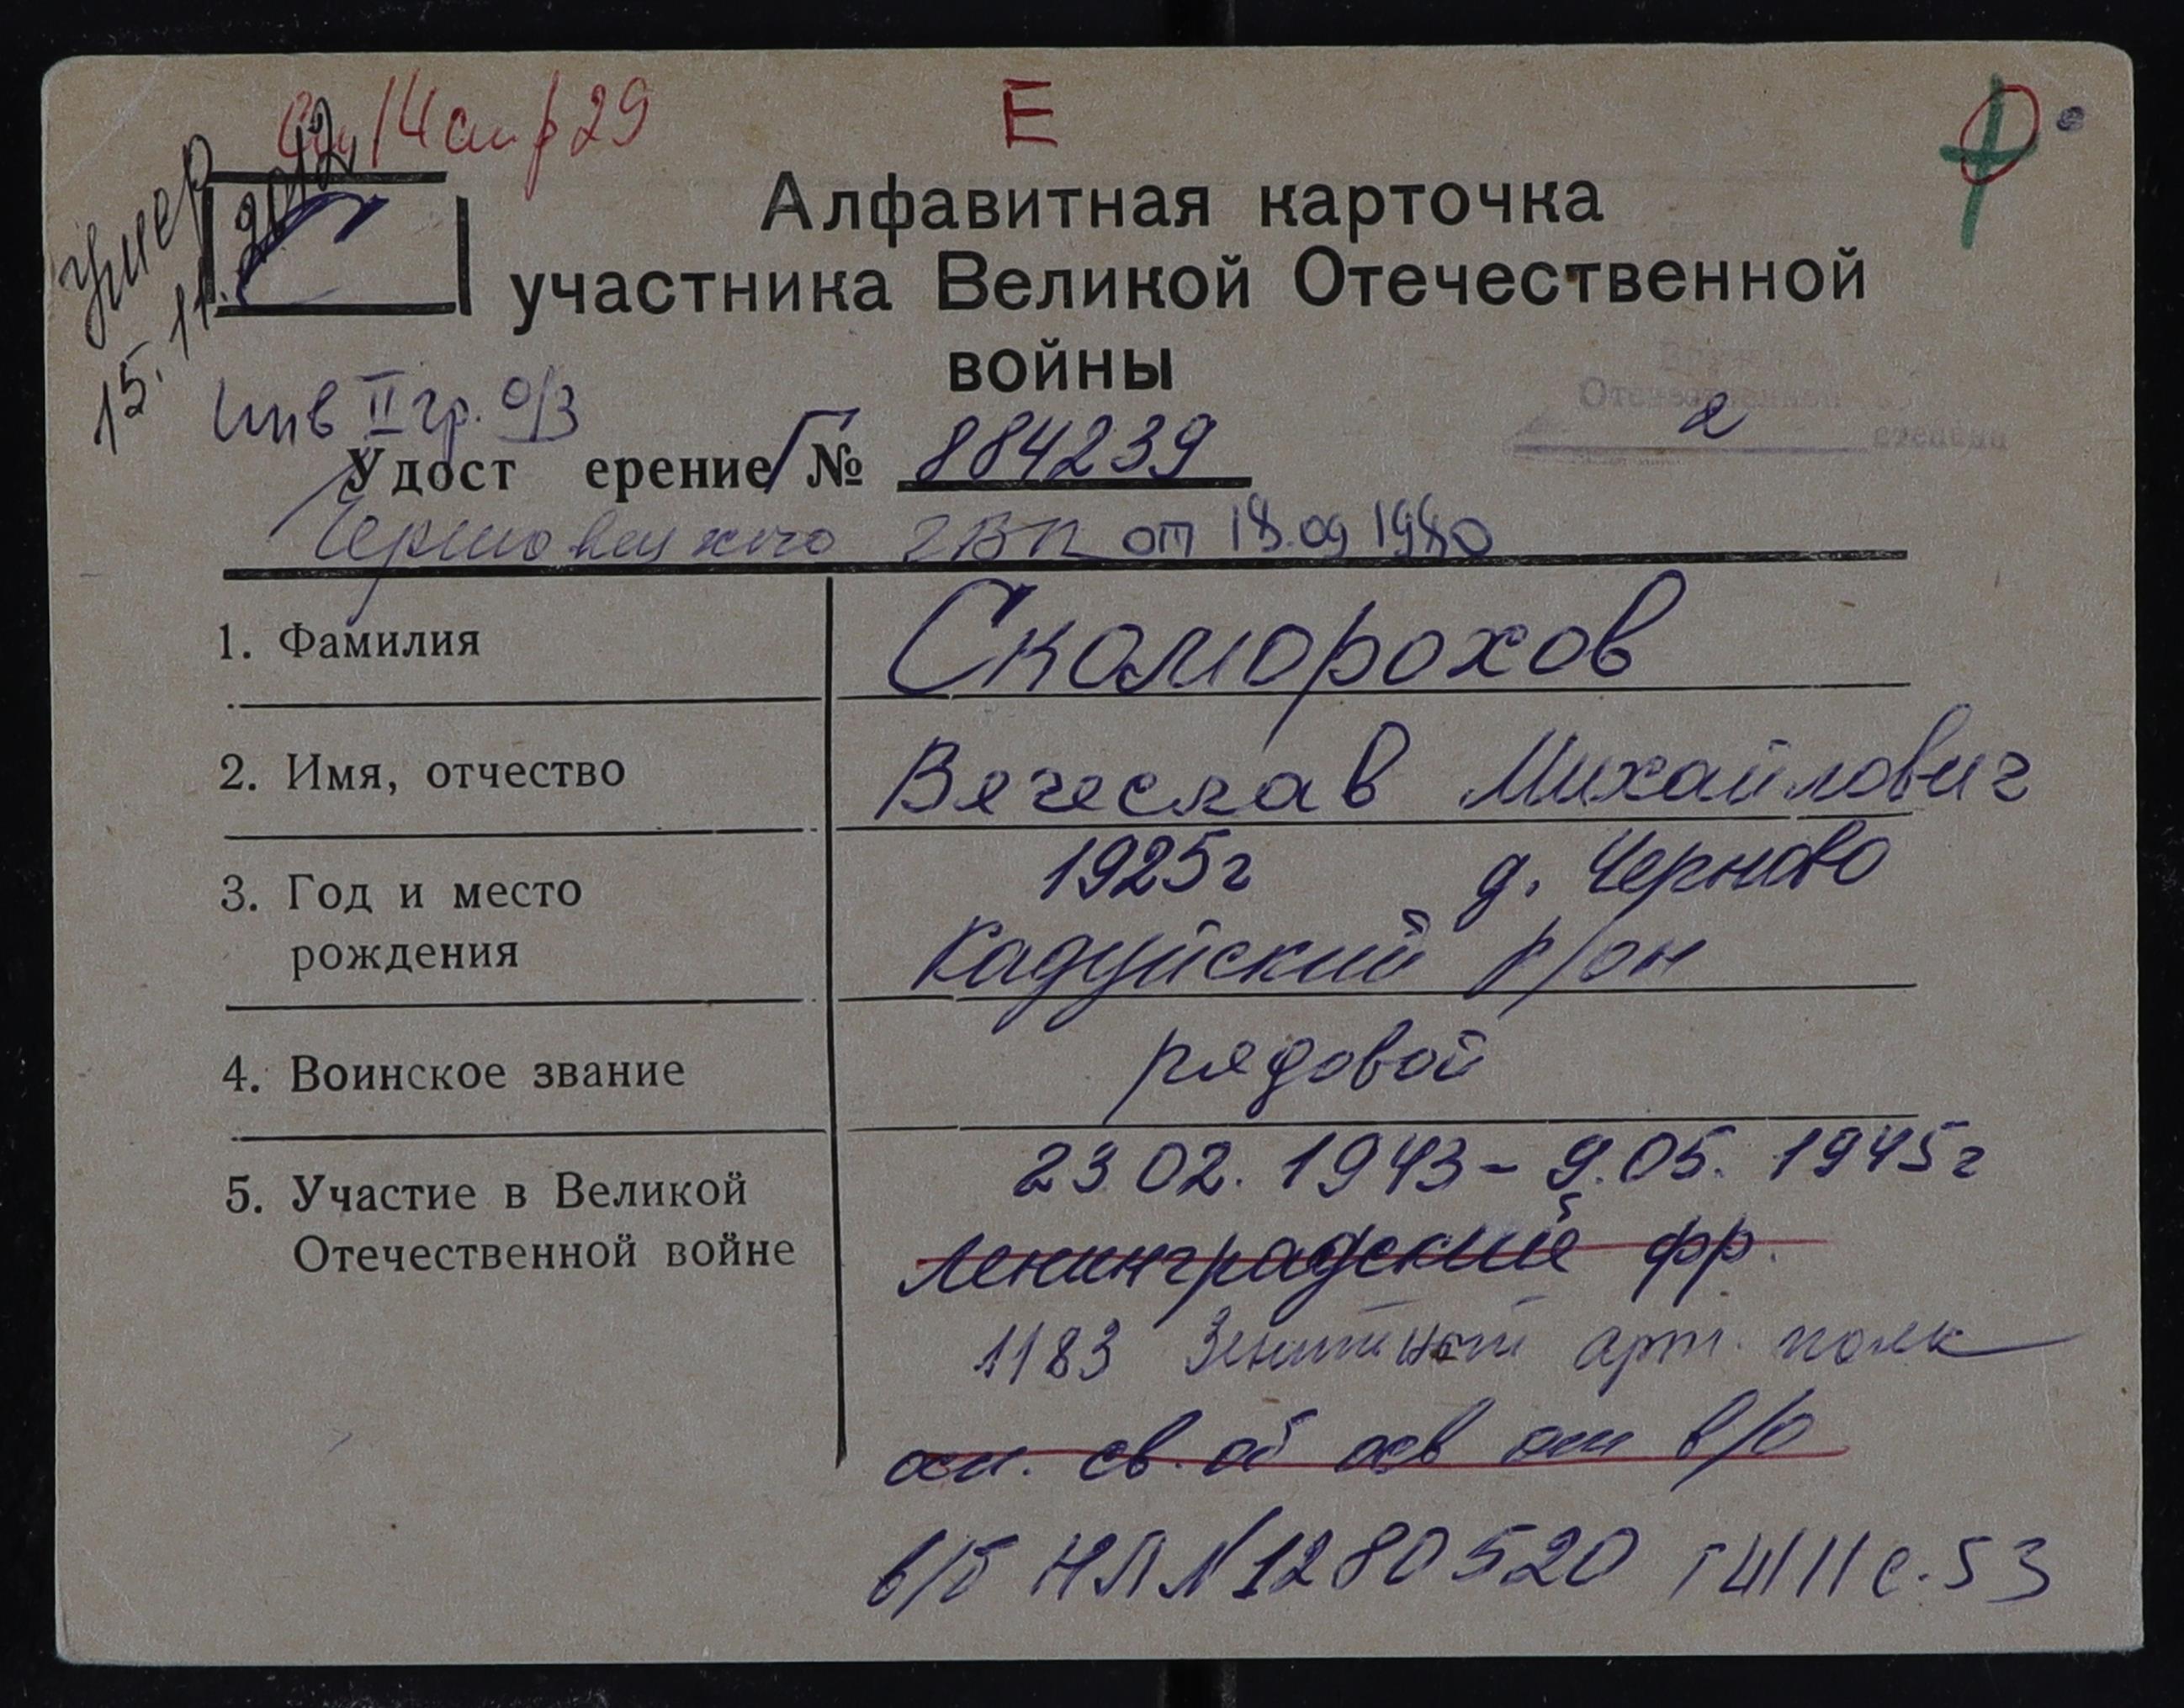 14 29
Е
умер
15.11.2012
С
Алфавитная карточка
участника Великой Отечественной
войны
Инв II гр. о/з
Отечественной
2
степени
Удост ерение Г № 884239
Череповецкого ГВК от 18.09 1980
1. Фамилия
Скоморохов
2. Имя, отчество
Вячеслав Михайлович
3. Год и место
рождения
1925г д. Черново
Кадуйский р/он
4. Воинское звание
рядовой
5. Участие в Великой
Отечественной войне
23 02. 1943 - 9.05. 1945г
Ленинградский фр.
1183 Зенитный арт. полк
св. об
в/б НЛ № 1280520 с. 53